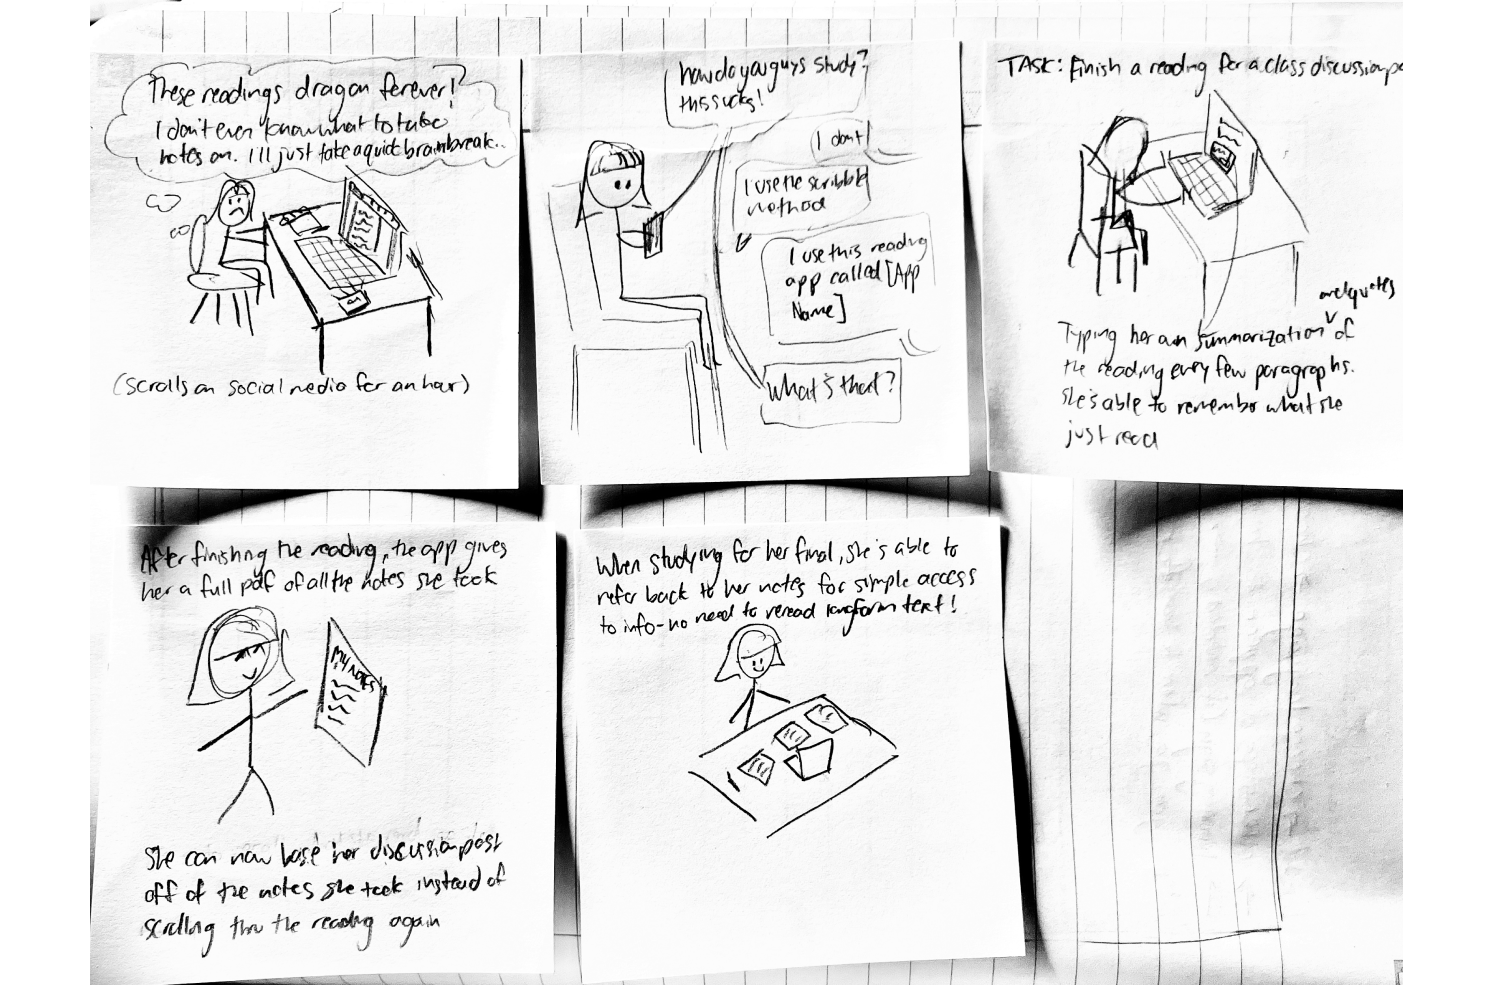 These readings drag on forever!
I don't even know what to take
notes on. I'll just take a quick brain break..
(scrolls on social media for an hour)
how do you guys study?
this sucks!
I don't
I use the scribble
method
I use this reading
app called [App
Name]
What's that?
TASK: Finish a reading for a class discussion po
and quotes
Typing her own summarization of
the reading every few paragraphs.
she's able to remember what she
just read
After finishing the reading, the app gives
her a full pdf of all the notes she took
MY NOTES
She can now base her discussion post
off of the notes she took instead of
scrolling thru the reading again
When studying for her final, she's able to
refer back to her notes for simple access
to info-no need to reread longform text!